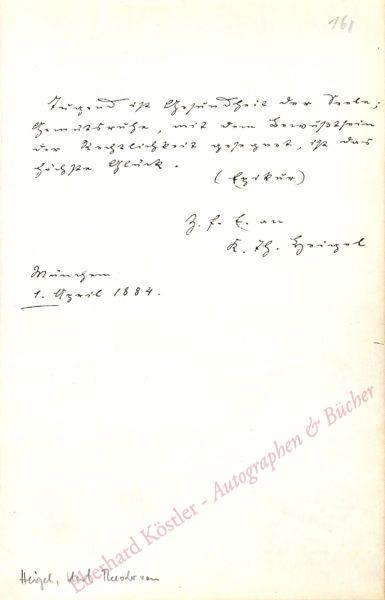 168
Tugend ist Gesundheit der Seele;
Gemütsruhe, mit dem Bewußtsein
der Rechtlichkeit gesegnet, ist das
höchste Glück.
(Epikur)
Z. f. E. an
K. Th. Heigel
München
1. April 1884.
Eberhard Köstler - Autographen & Bücher
Heigel, Karl Theodor von